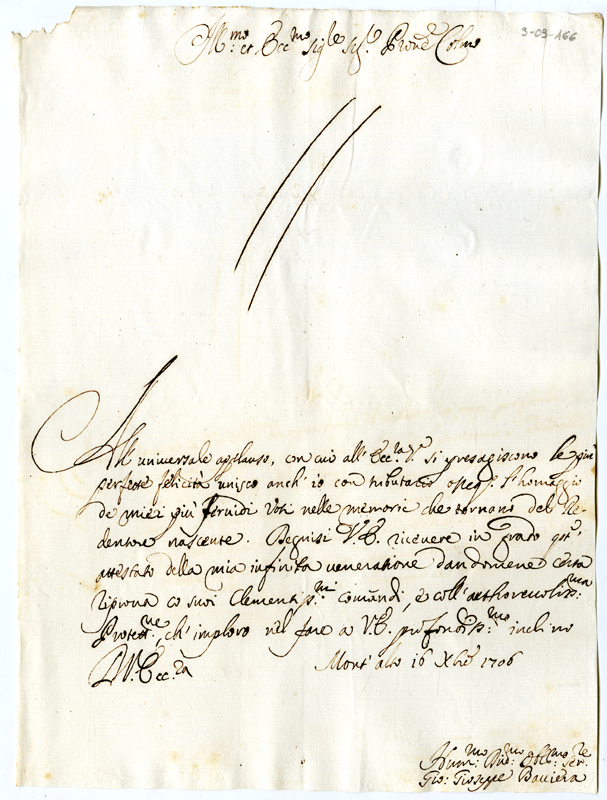 Ill:mo et Ecc:mo Sig:re Sig:re Prone Colmo
3-03-166
All' universale applauso, con cui all' Ecc:za V:ra si presagiscono le più
perfette felicità unisco anch' io con tributario l'homaggio
de miei più fervidi voti nelle memorie che tornano del Re-
dentore nascente. Degnisi V.E. ricevere in grado q:to
attestato della mia infinita veneratione dandomene certa
riprova co suoi Clementis:mi comandi, e coll' authorevolis:ma
Protett:ne, ch' imploro nel fare a V.E. profondis:mo inchino
D.V. Ecc:za Mont' alto 16 Xbre 1706
Hum:mo Div:mo Obl:mo Ser:re
Gio: Gioseppe Baviera